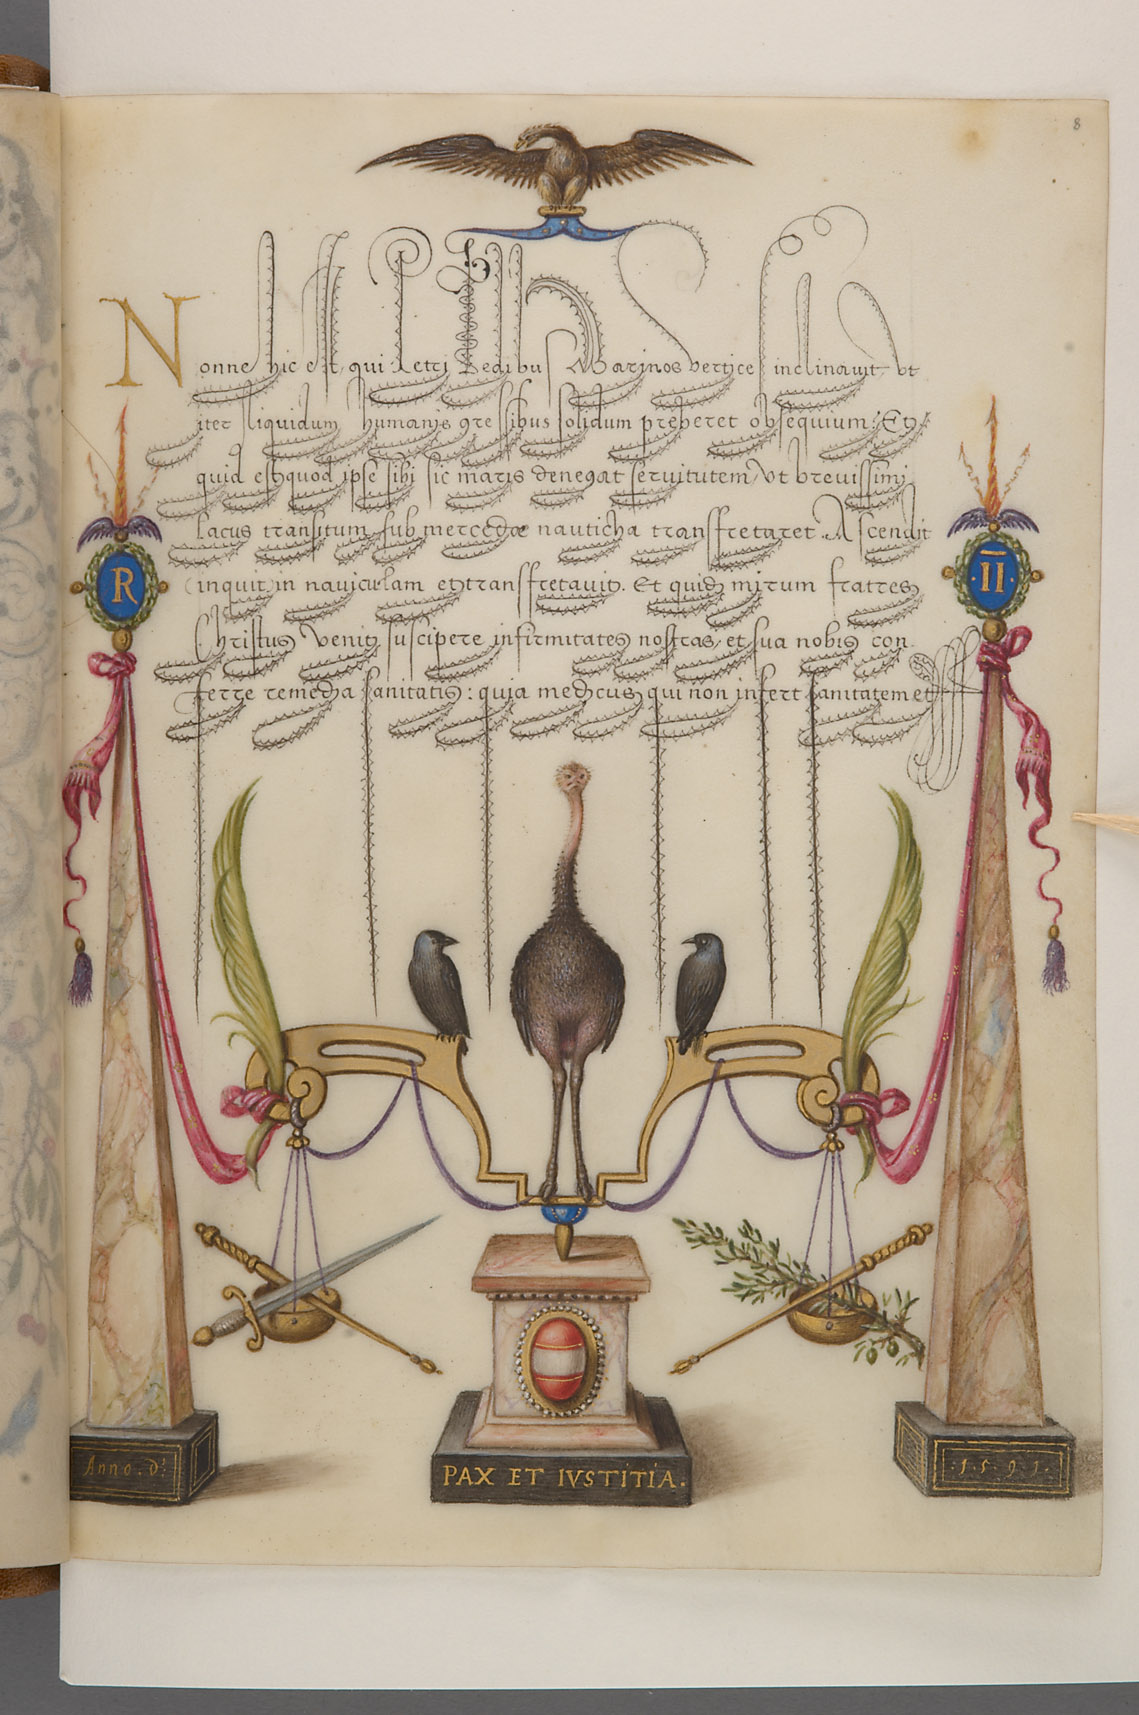 8
Nonne hic est, qui Petri Pedibus Marinos vertices inclinauit, vt
iter liquidum humanis gressibus solidum preberet obsequium? Et
quid est quod ipse sibi sic maris denegat seruitutem, vt breuissimi
lacus transitum sub mercedæ nauticha transfretaret Ascendit
(inquit) in nauiculam et transfretauit. Et quid mirum fratres,
Christus venit suscipere infirmitates nostras, et sua nobis con
ferre remedia sanitatis: quia medicus qui non infert sanitatem et
R
II
Anno. d:
PAX ET IVSTITIA.
:1.5.9.1.